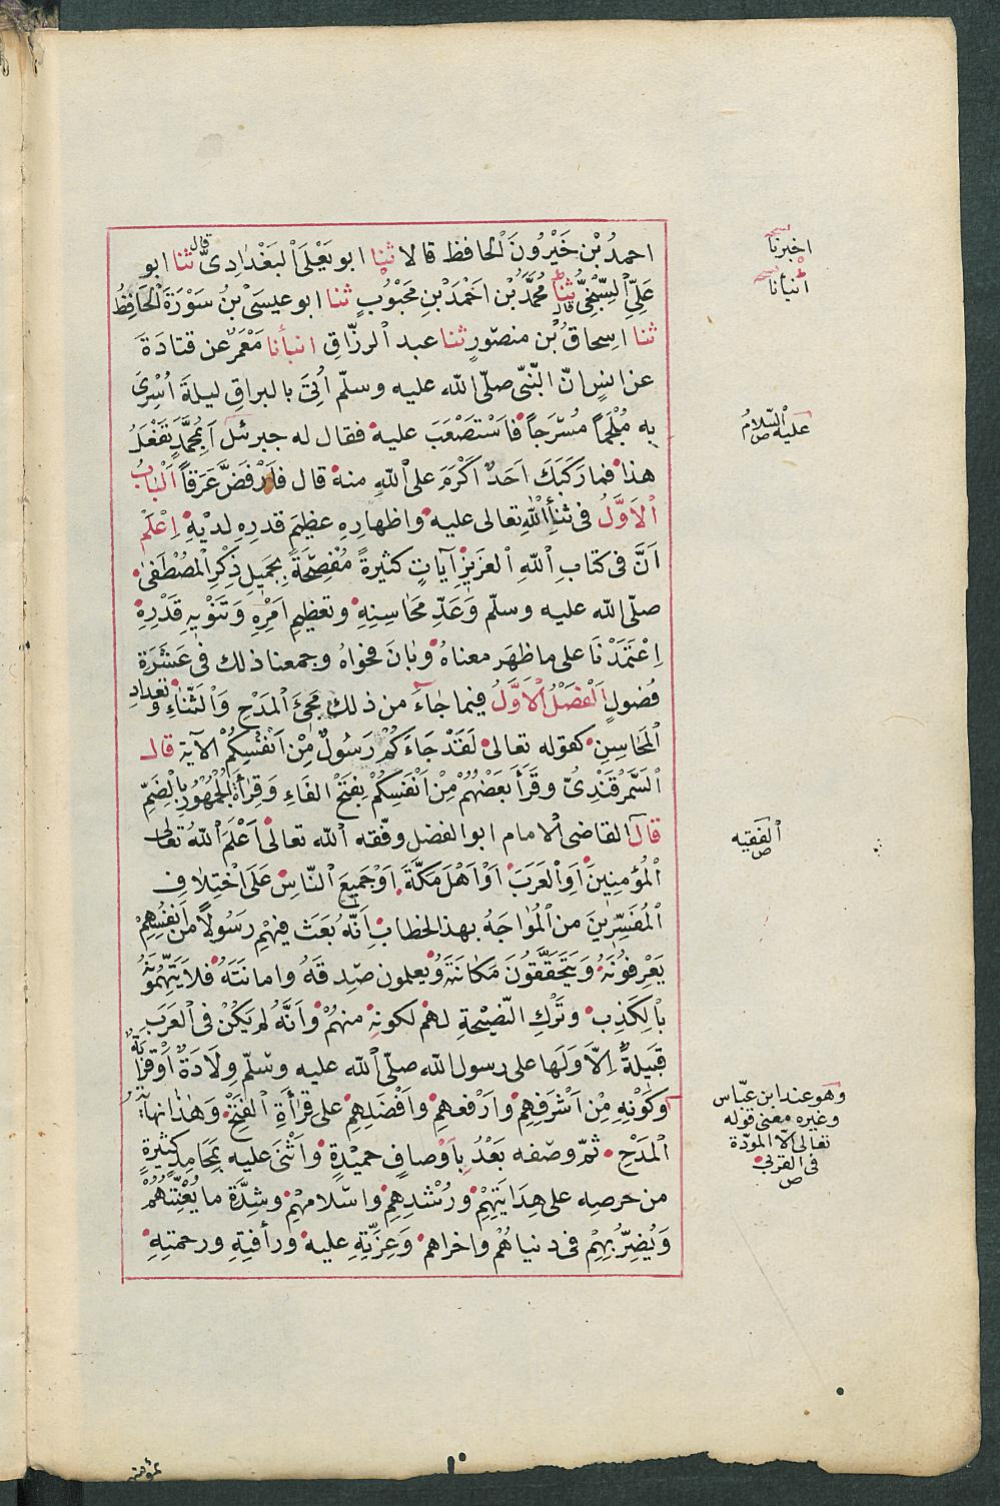 احمدُ بْنِ خَيْرُونَ الْحَافظ قالا ثنا ابو يَعْلَى الْبَغْدَادِىُّ قال ثنا ابو
عَلِىٍّ السِّنْجِىُّ قال ثنا مُحَمَّدُ بْن اَحْمَدَ بْنِ مَحْبُوبٍ ثنا ابو عيسَى بْنُ سَوْرَةَ الْحَافِظُ
ثنا اسحاقُ بْن منصُورٍ ثنا عبد الرزّاقِ انبأنا مَعْمَرٌ عن قتادَةَ
عن انسٍ انّ النّبىّ صلّى الله عليه وسلّم اُتِىَ بالبراقِ ليلةَ اُسْرِىَ
بِه مُلْجَماً مُسْرَجاً فَاسْتَصْعَبَ عليه فقال له جبرئيل اَبِمُحَمَّدٍ تَفْعَلُ
هذا فما رَكِبَكَ اَحَدٌ اَكْرَمَ على اللهِ منهُ قال فَارْفَضَّ عَرَقاً اَلْبَابُ
الْاَوَّلُ فى ثنأ اللهِ تعالى عليه واظهارِهِ عظيمَ قدرِهِ لديْهِ اِعْلَمْ
اَنَّ فى كتابِ اللهِ العزيزِ آيَاتٍ كثيرةً مُفْصِحَةً بِجَمِيلِ ذِكْرِ الْمُصْطَفىٰ
صلّى الله عليه وسلّم وَعَدِّ مَحَاسِنِهِ وتعظيمِ اَمْرِهِ وَتَنْوِيهِ قَدْرِهِ
اِعْتَمَدْنَا على ما ظهَر معناهُ وبَانَ فحواهُ وجمعنا ذلك فى عَشَرَةِ
فُصُولٍ اَلْفَصْلُ الْاَوَّلُ فيما جَاءَ من ذلك مَجِىَٔ الْمَدْحِ وَالثَّنَاءِ وتعدادِ
الْمَحَاسِنِ كقوله تعالى لَقَدْ جَاءَكُمْ رَسُولٌ مِنْ اَنْفُسِكُمْ الآية قال
السَّمَرْقَنْدِىُّ وقَرَأَ بَعْضُهُمْ مِنْ اَنْفَسِكُمْ بِفَتْحِ الفَاءِ وَقِرَأَةُ الْجُمْهُورِ بِالضَّمِّ
قال القاضى الامام ابو الفضل وفّقه الله تعالى اَعْلَمَ اللهُ تعالى
الْمُؤْمِنِينَ اَوِ الْعَرَبَ اَوْ اَهْلَ مَكَّةَ اَوْ جَمِيعَ النّاسِ عَلَى اخْتِلَافِ
الْمُفَسِّرِينَ من الْمُوَاجَهُ بهذا الخطابِ اَنَّهُ بَعَثَ فيهِمْ رَسُولاً من اَنفُسِهِمْ
يَعْرِفُونَهُ وَيَتَحَقَّقُونَ مَكَانَتَهُ وَيعلمون صِدقَهُ وامانَتَهُ فلا يَتَّهِمُونَهُ
بالكَذِبِ وتَرْكِ النَّصِيْحةِ لهم لكونهِ منهُمْ وَاَنَّهُ لم يَكُنْ فى العَرَبِ
قَبِيلةٌ اِلّا وَلَهَا على رسول الله صلّى الله عليه وسلّم وِلَادَةٌ اَوْ قَرَابَةٌ
وكَوْنِهِ مِنْ اَشْرَفِهِمْ وارْفعِهِمْ وافْضَلِهِمْ على قرأةِ الفَتْحِ وَهٰذا نهايةُ
الْمَدْحِ ثمّ وصَفه بَعْدُ بِاَوْصافٍ حميْدةٍ وَاَثْنَى عليه بِمَحَامِدَ كثيرةٍ
من حرصِهِ على هِدَايَتِهِمْ ورُشْدِهِمْ واسْلامهِمْ وشدَّةِ ما يُعْنِتُهُمْ
وَيُضِرُّ بِهِمْ فى دنياهُمْ واخراهم وَعِزَّتِهِ عليهِ ورأفتِهِ ورحمتِهِ
اخبرنا
انبأنا
عليه السّلامُ ص
الفقيه ص
وهو عند ابن عبّاس
وغيره معنى قوله
تعالى الّا المودّة
فى القربى
ص